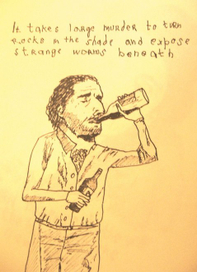 It takes large murder to turn
rocks in the shade and expose
strange worms beneath